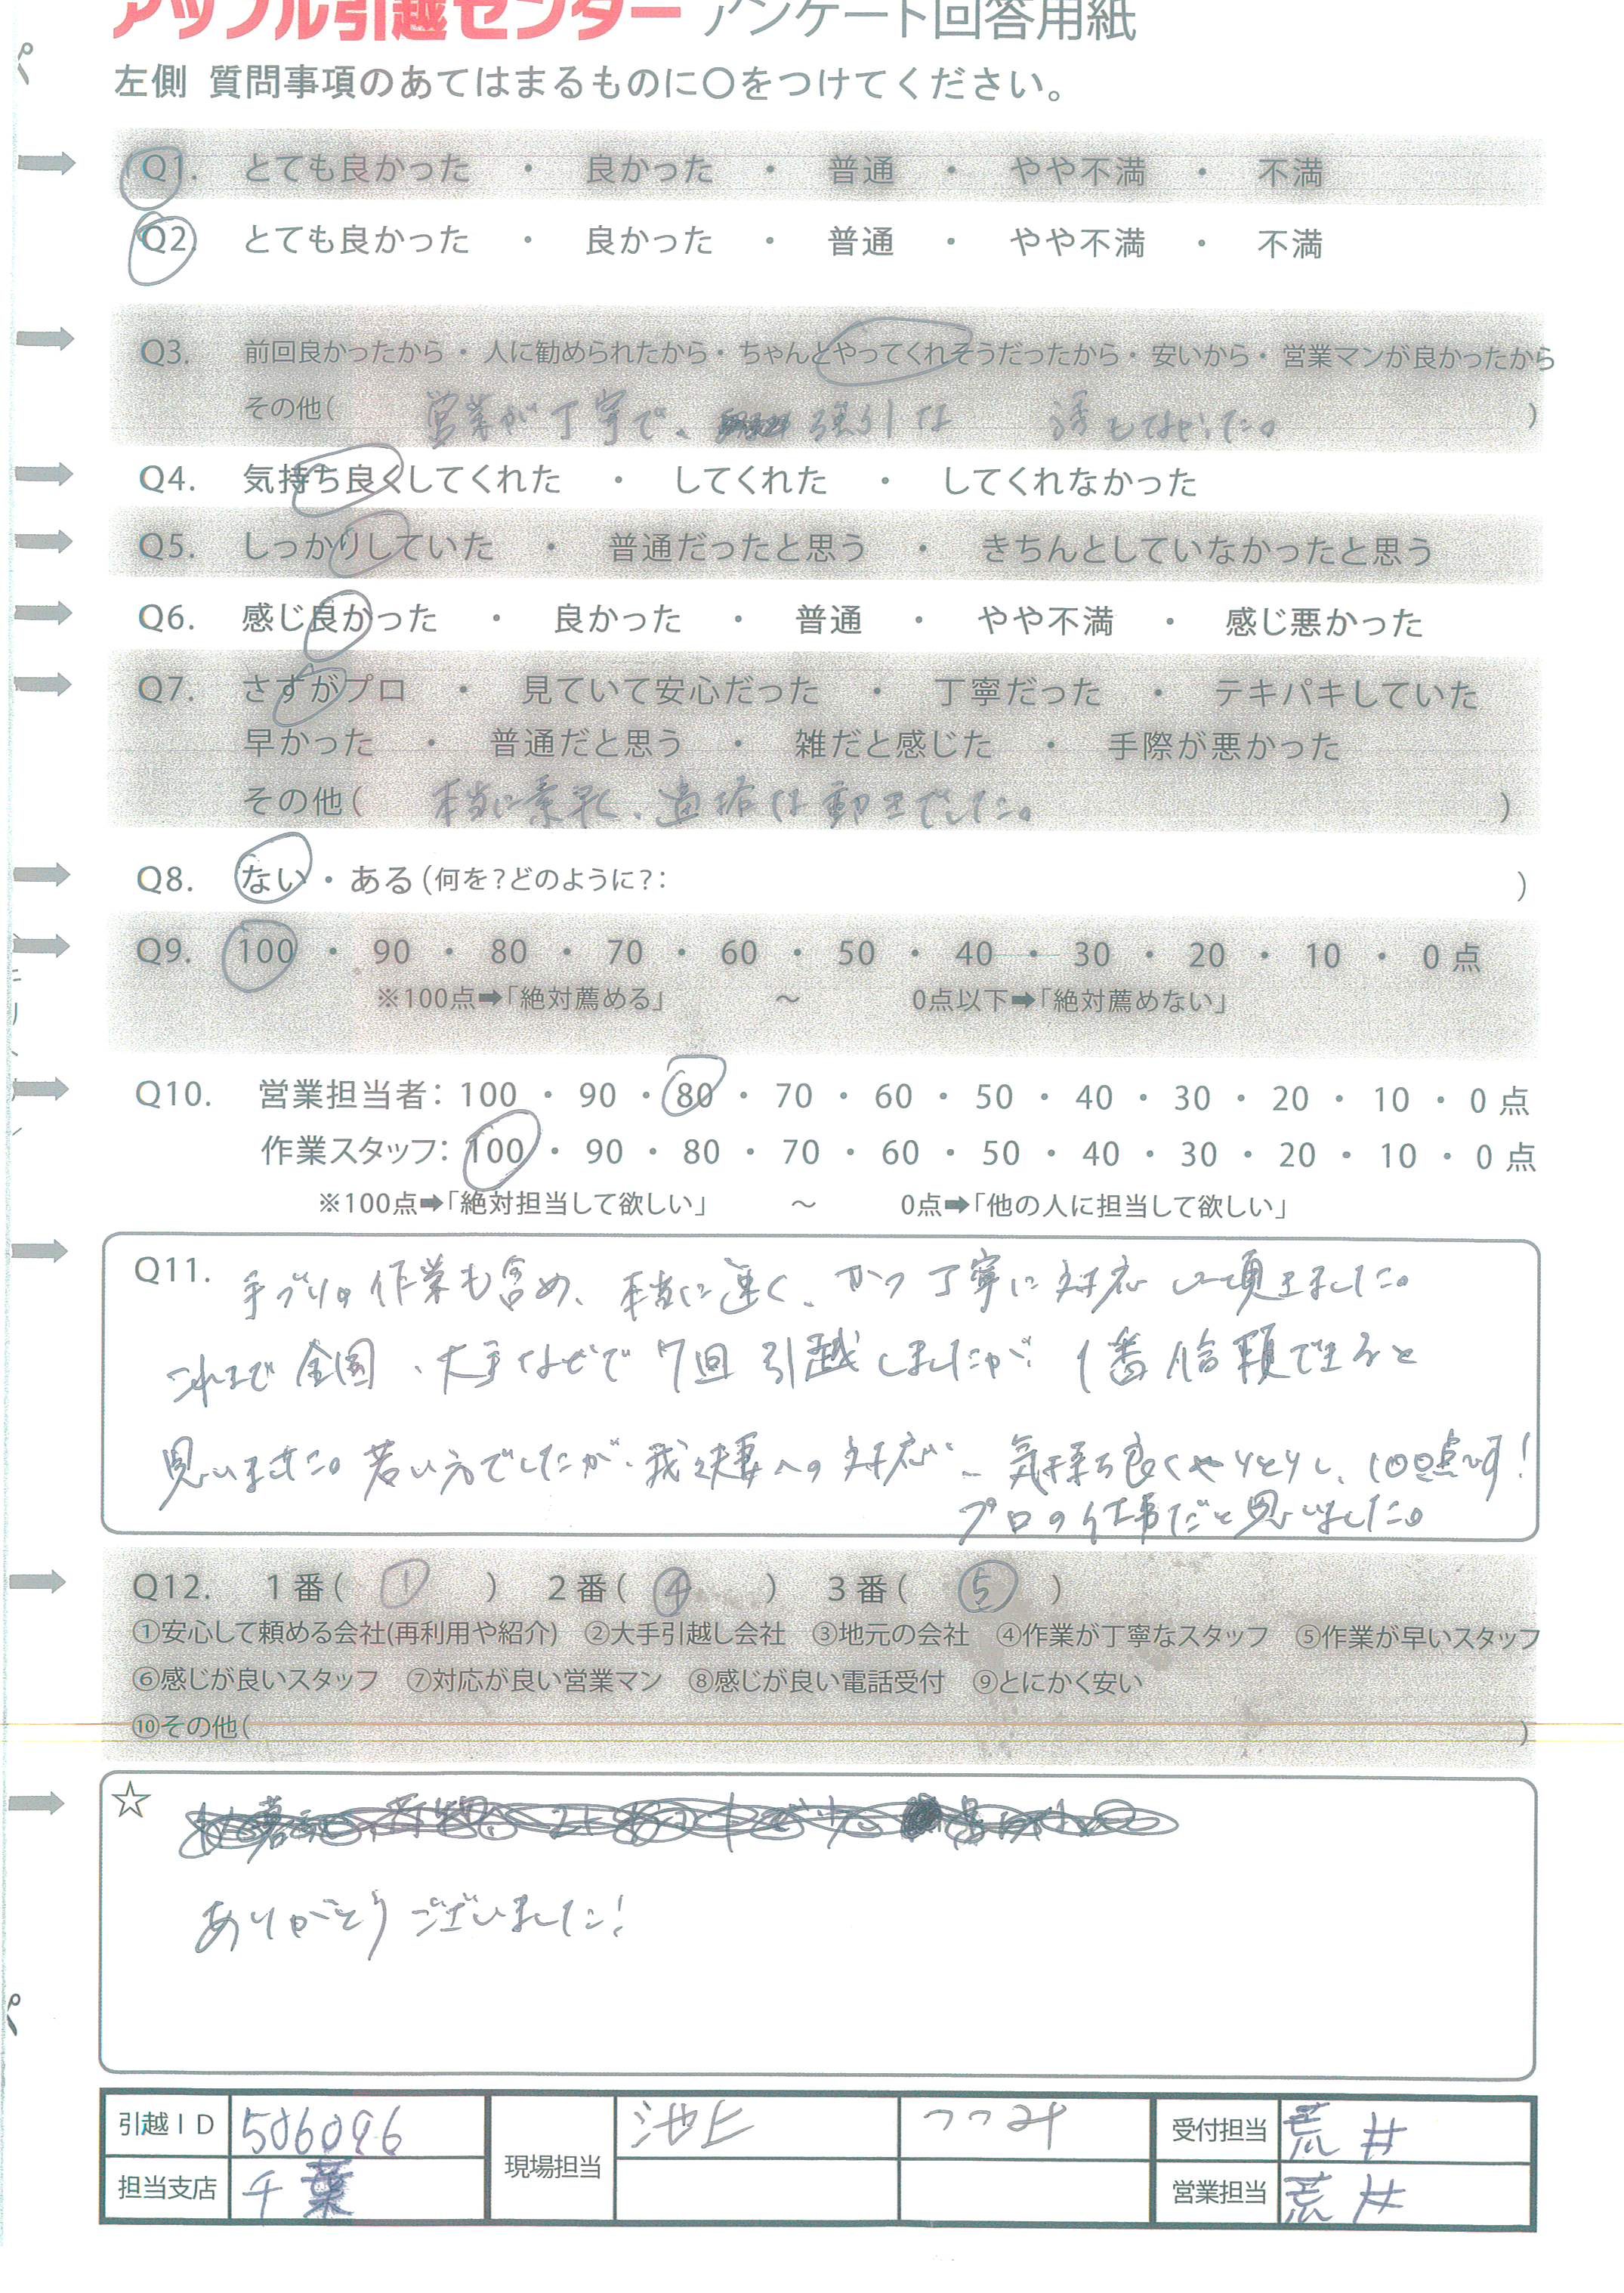 アップル引越センター アンケート回答用紙
左側 質問事項のあてはまるものに〇をつけてください。
Q1. とても良かった ・ 良かった ・ 普通 ・ やや不満 ・ 不満
Q2. とても良かった ・ 良かった ・ 普通 ・ やや不満 ・ 不満
Q3. 前回良かったから・人に勧められたから・ちゃんとやってくれそうだったから・安いから・営業マンが良かったから
その他( 営業が丁寧で、 強引な 誘もなかった。 )
Q4. 気持ち良くしてくれた ・ してくれた ・ してくれなかった
Q5. しっかりしていた ・ 普通だったと思う ・ きちんとしていなかったと思う
Q6. 感じ良かった ・ 良かった ・ 普通 ・ やや不満 ・ 感じ悪かった
Q7. さすがプロ ・ 見ていて安心だった ・ 丁寧だった ・ テキパキしていた
早かった ・ 普通だと思う ・ 雑だと感じた ・ 手際が悪かった
その他( 本当に素早く、 でした。 )
Q8. ない・ある(何を?どのように?: )
Q9. 100 ・ 90 ・ 80 ・ 70 ・ 60 ・ 50 ・ 40 ・ 30 ・ 20 ・ 10 ・ 0点
※100点➡「絶対薦める」 ～ 0点以下➡「絶対薦めない」
Q10. 営業担当者: 100 ・ 90 ・ 80 ・ 70 ・ 60 ・ 50 ・ 40 ・ 30 ・ 20 ・ 10 ・ 0点
作業スタッフ: 100 ・ 90 ・ 80 ・ 70 ・ 60 ・ 50 ・ 40 ・ 30 ・ 20 ・ 10 ・ 0点
※100点➡「絶対担当して欲しい」 ～ 0点➡「他の人に担当して欲しい」
Q11. 作業も含め、本当に速く、かつ丁寧に対応して頂きました。
これまで全国、大手などで7回引越しましたが、1番信頼できると
思いました。若い方でしたが、我々夫妻への対応、気持ち良くやりとりし、100点です!
プロの仕事だと思いました。
Q12. 1番( ① ) 2番( ④ ) 3番( ⑤ )
①安心して頼める会社(再利用や紹介) ②大手引越し会社 ③地元の会社 ④作業が丁寧なスタッフ ⑤作業が早いスタッフ
⑥感じが良いスタッフ ⑦対応が良い営業マン ⑧感じが良い電話受付 ⑨とにかく安い
⑩その他( )
☆
ありがとうございました!
引越ID 506096 現場担当 池上 つつみ 受付担当 荒井
担当支店 千葉 営業担当 荒井